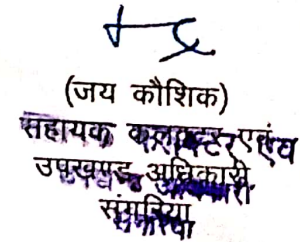 (जय कौशिक)
सहायक कलक्टर एवं
उपखण्ड अधिकारी
संगरिया